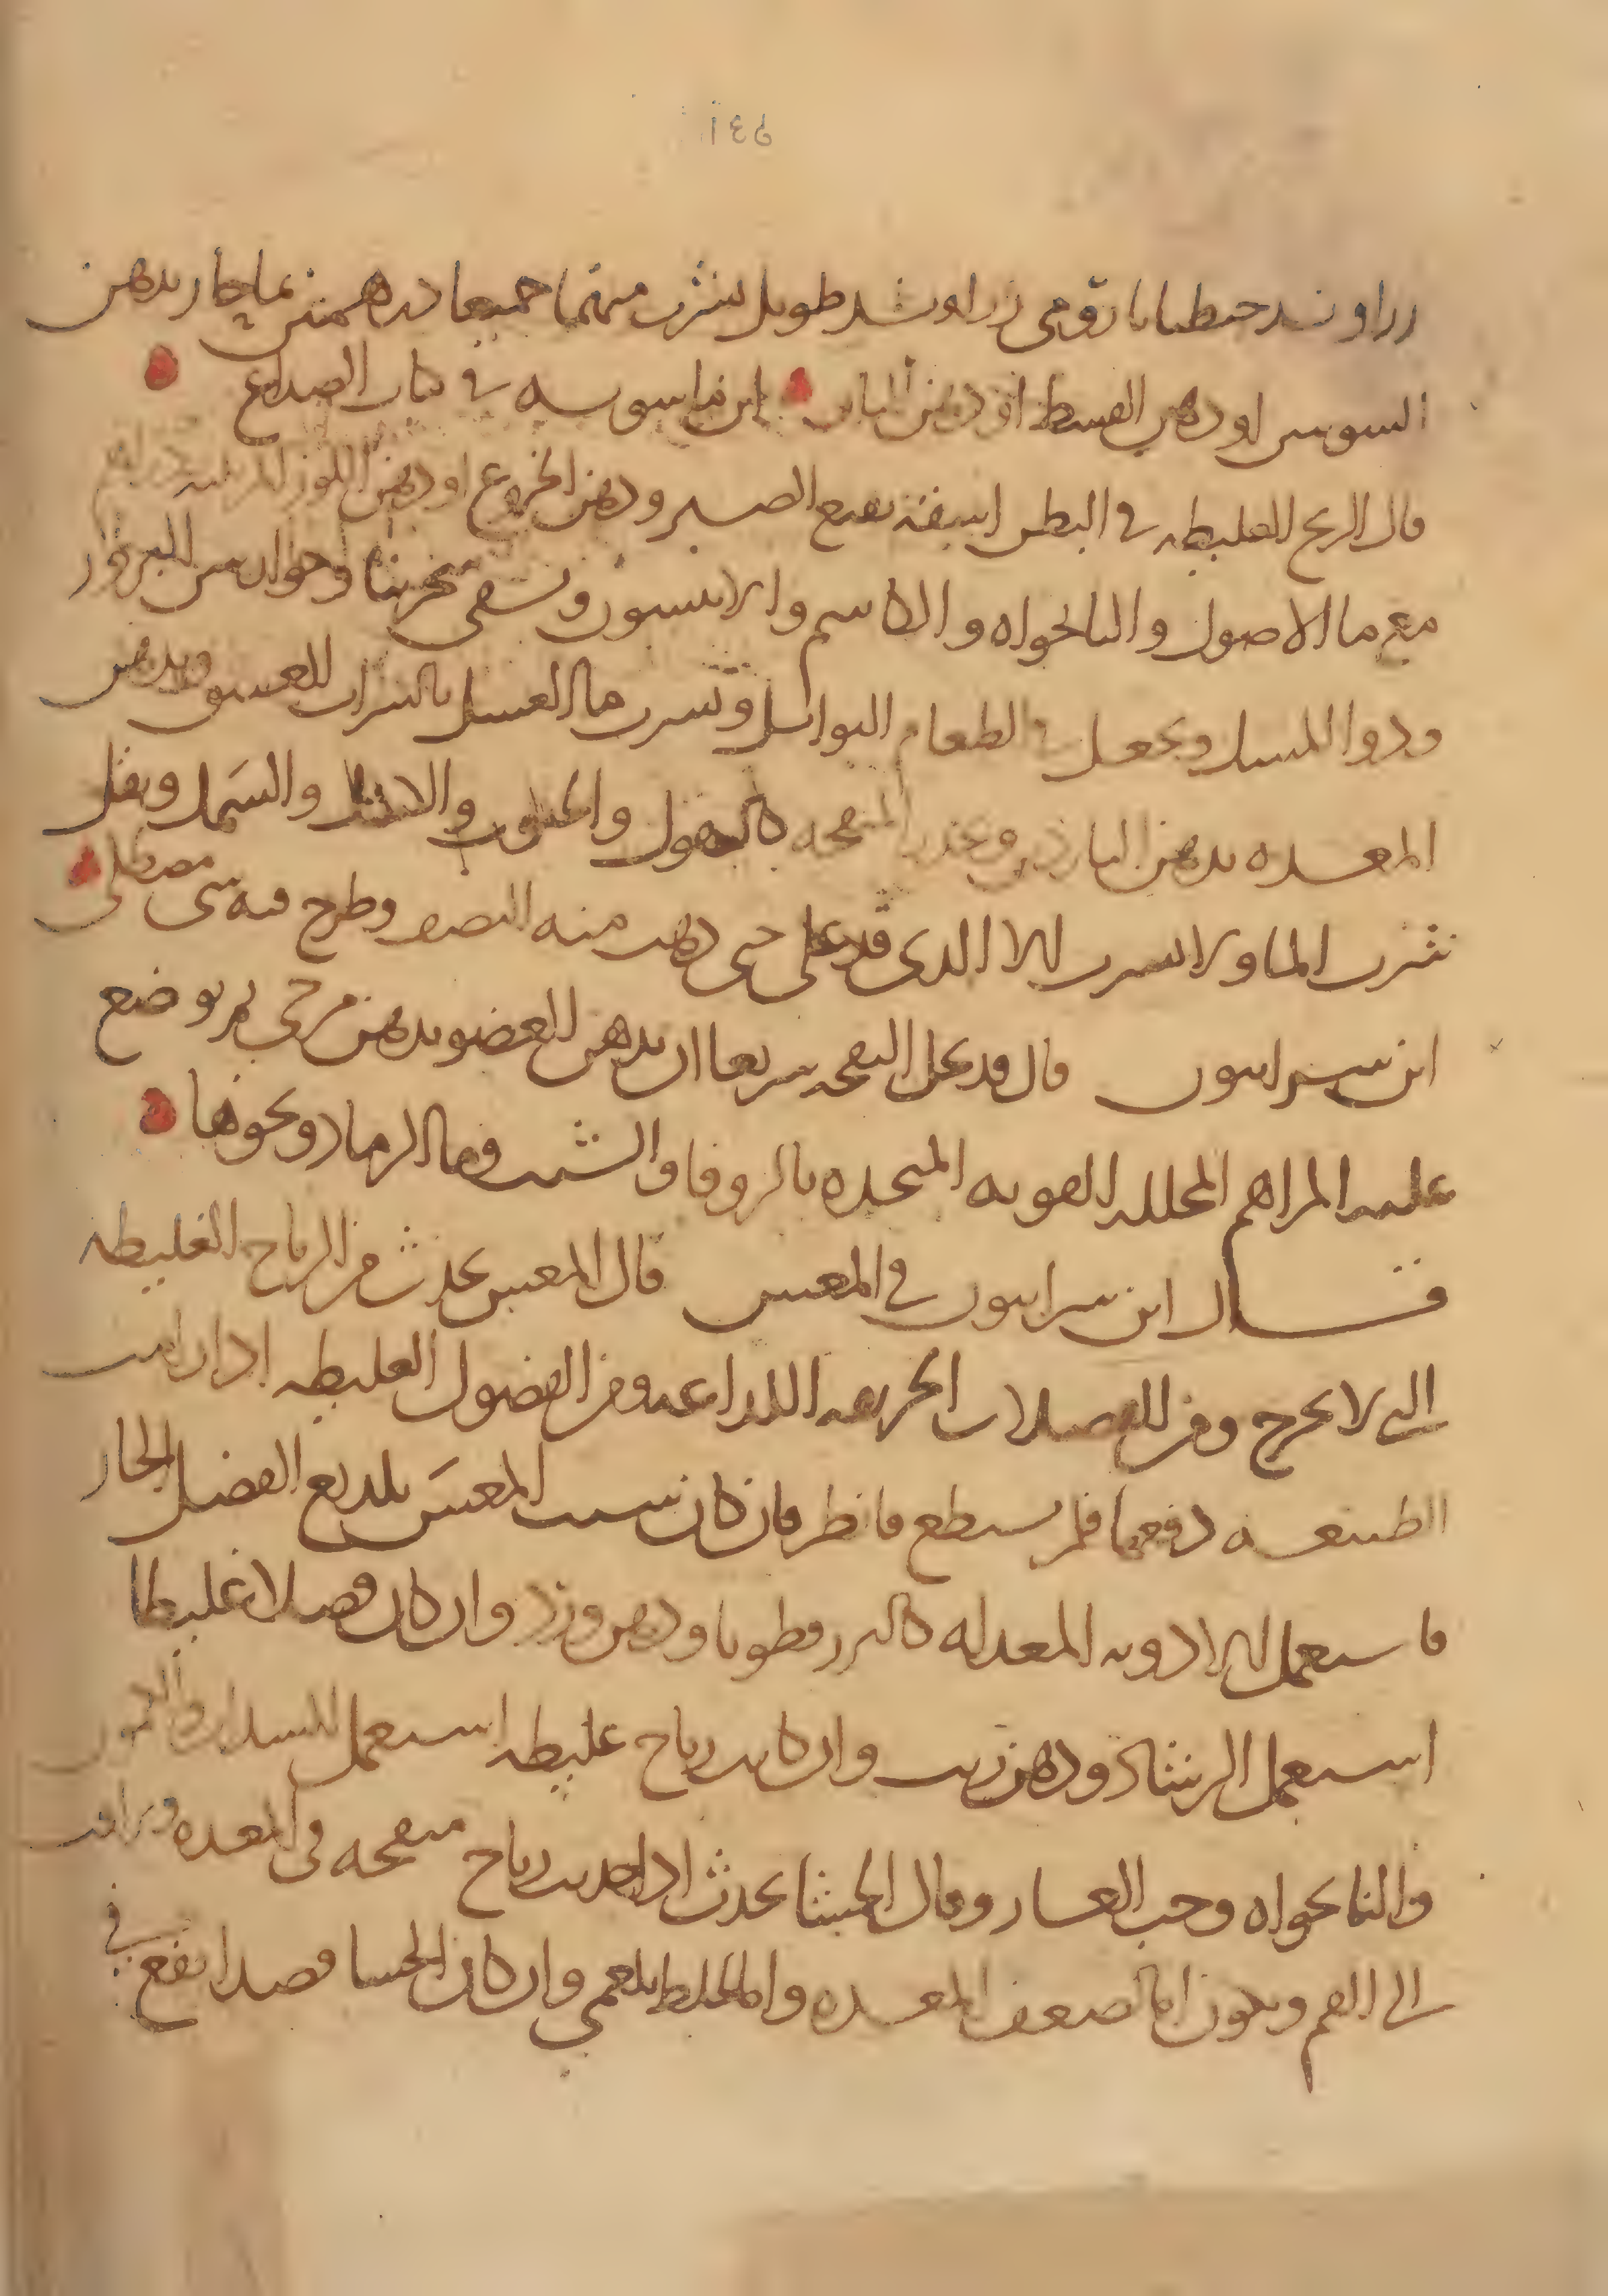 زراوند حنطيانا رومي زراوند طويل يشرب منهما جميعا درهمين بماحار بدهن
السوسن او دهن القسط او دهن البان ابن ماسويه في كتاب الصداع
قال الريح الغليظه في البطن اسقه نقيع الصبر ودهن الخروع او دهن اللوز المر
مع ما الاصول والنانخواه والكاشم والانيسون ويسقى سجرينا وجوارسن البزور
ودوا المسك ويجعل في الطعام التوابل ويشرب ما العسل بالشراب العتيق ويدهن
المعده بدهن الناردين ويحذر المنفخه كالبقول والحبوب والسمك ويقل
شرب الما ولا يشرب الا الذي قد غلي حتى ذهب منه النصف وطرح فيه شي مصطكى
ابن سرابيون قال قد يحل النفخه سريعا ان يدهن العضو بدهن مرخي ثم يوضع
عليه المراهم المحلله القويه المتخذه بالزوفا والشبت وما الرماد ونحوها
قال ابن سرابيون في المغس قال المغس يحدث من الرياح الغليظه
التي لا تخرج ومن الفضلات الحريفه اللذاعه ومن الفضول الغليظه اذا رامت
الطبيعه دفعها فلم يستطع فانظر فان كان سبب المغس بلذيع الفضل الحار
فاستعمل الادويه المعدله كالبزرقطونا ودهن ورد وان كان فضلا غليظا
استعمل الرشاد ودهن زيت وان كانت رياح غليظه استعمل السداب والكمون
والنانخواه وحب الغار وقال الجشا يحدث اذا احدث رياح منفخه في المعده وترامت
الى الفم ويكون اما لضعف المعده واما لخلط بلغمي وان كان الجشا قصدا نفع في